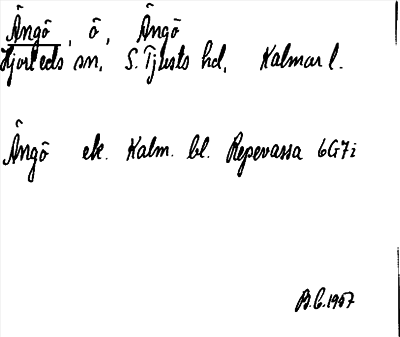 Ängö, ö, Ängö
Hjorteds sn. S. Tjusts hd. Kalmar l.
Ängö ek. Kalm. bl. Repenassa 6G7i
B.C. 1957